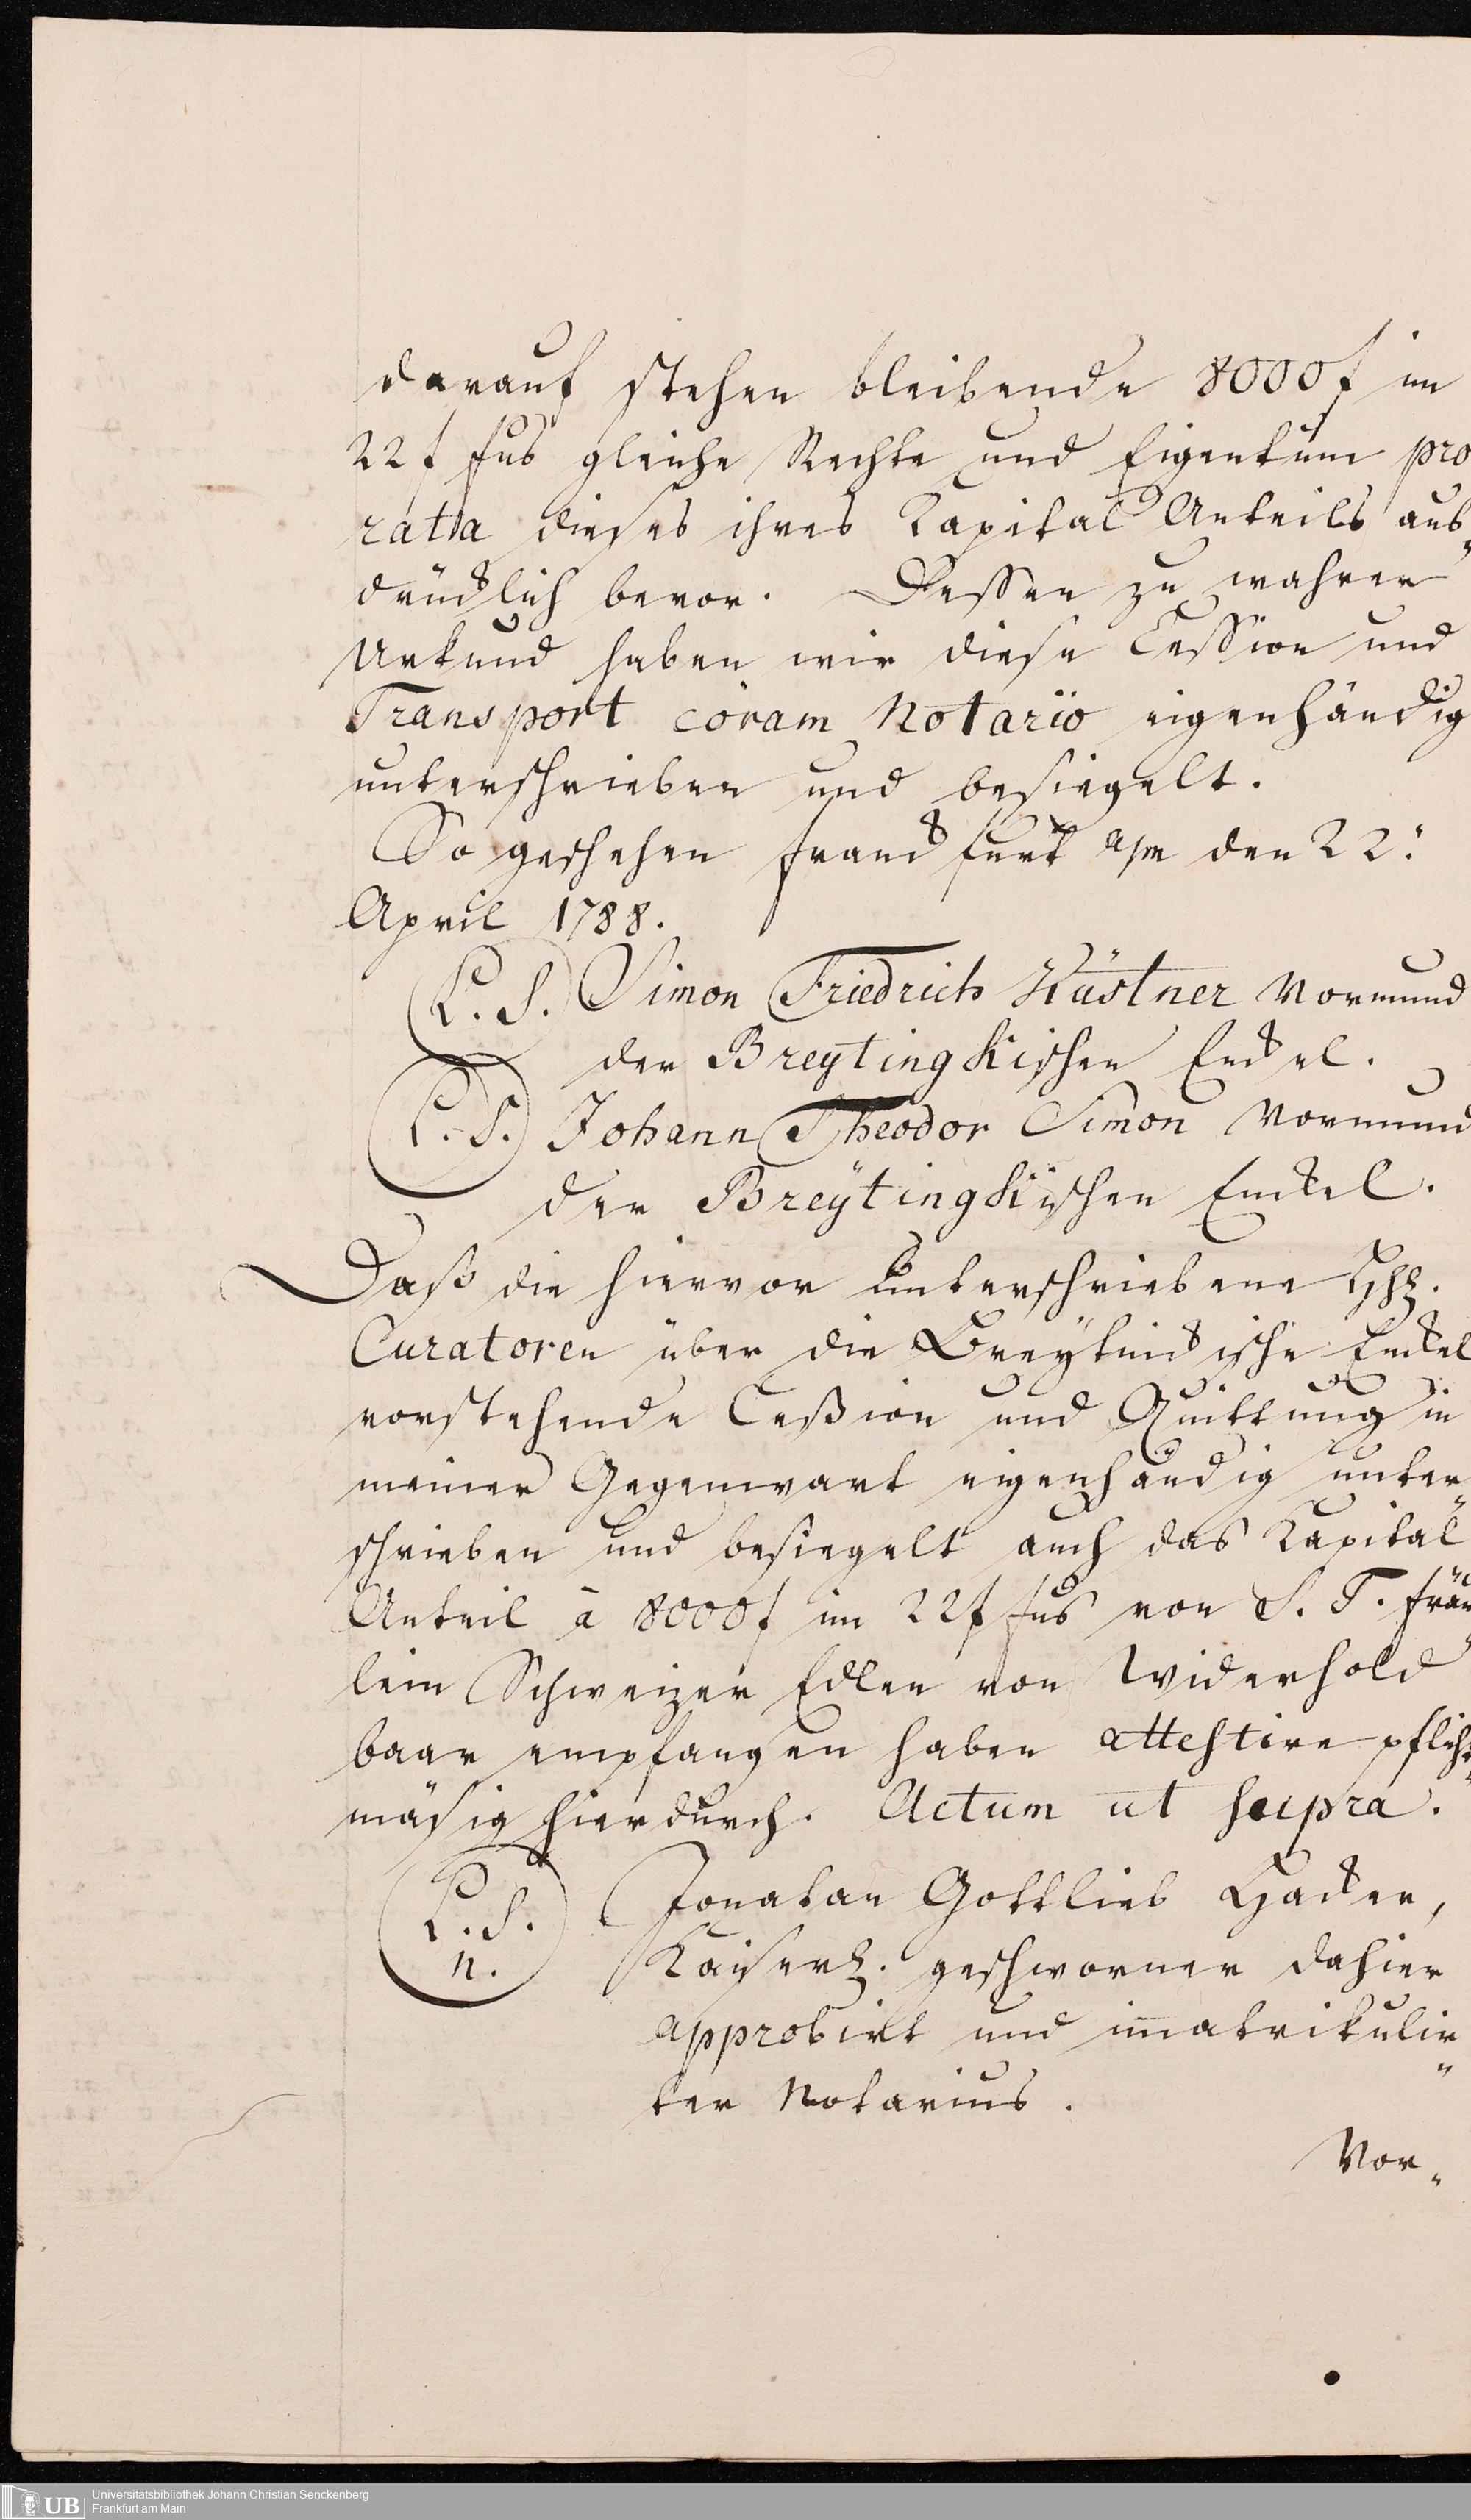 darauf stehen bleibende 8000 f im
22 f fus gleiche Rechte und Eigentum pro
rata dieses ihres Kapital Anteils aus„
drücklich bevor. Dessen zu wahrer
Urkund haben wir diese Cession und
Transport coram Notario eigenhändig
unterschrieben und besiegelt.
So geschehen Franckfurt a/m den 22:
April 1788.
L. S. Simon Friedrich Küstner Vormund
der Breytingkischen Enckel.
L. S. Johann Theodor Simon Vormund
der Breytingkischen Enckel.
Daß die hiervor unterschriebene
Curatoren über die Breytinckische Enckel
vorstehende Ceßion und Quittung in
meiner Gegenwart eigenhändig unter„
schrieben und besiegelt auch das Kapital
Anteil à 8000 f im 22 f fus von S. T. Fräu„
lein Schweizer Edlen von Widerhold
baar empfangen haben attestire pflicht„
mäsig hierdurch. Actum ut supra.
L. S. Jonatan Gottlieb Hacker,
n. Kaiserl. geschworner dahier
approbirt und immatrikulir„
ter Notarius.
Vor„
UB Universitätsbibliothek Johann Christian Senckenberg
Frankfurt am Main